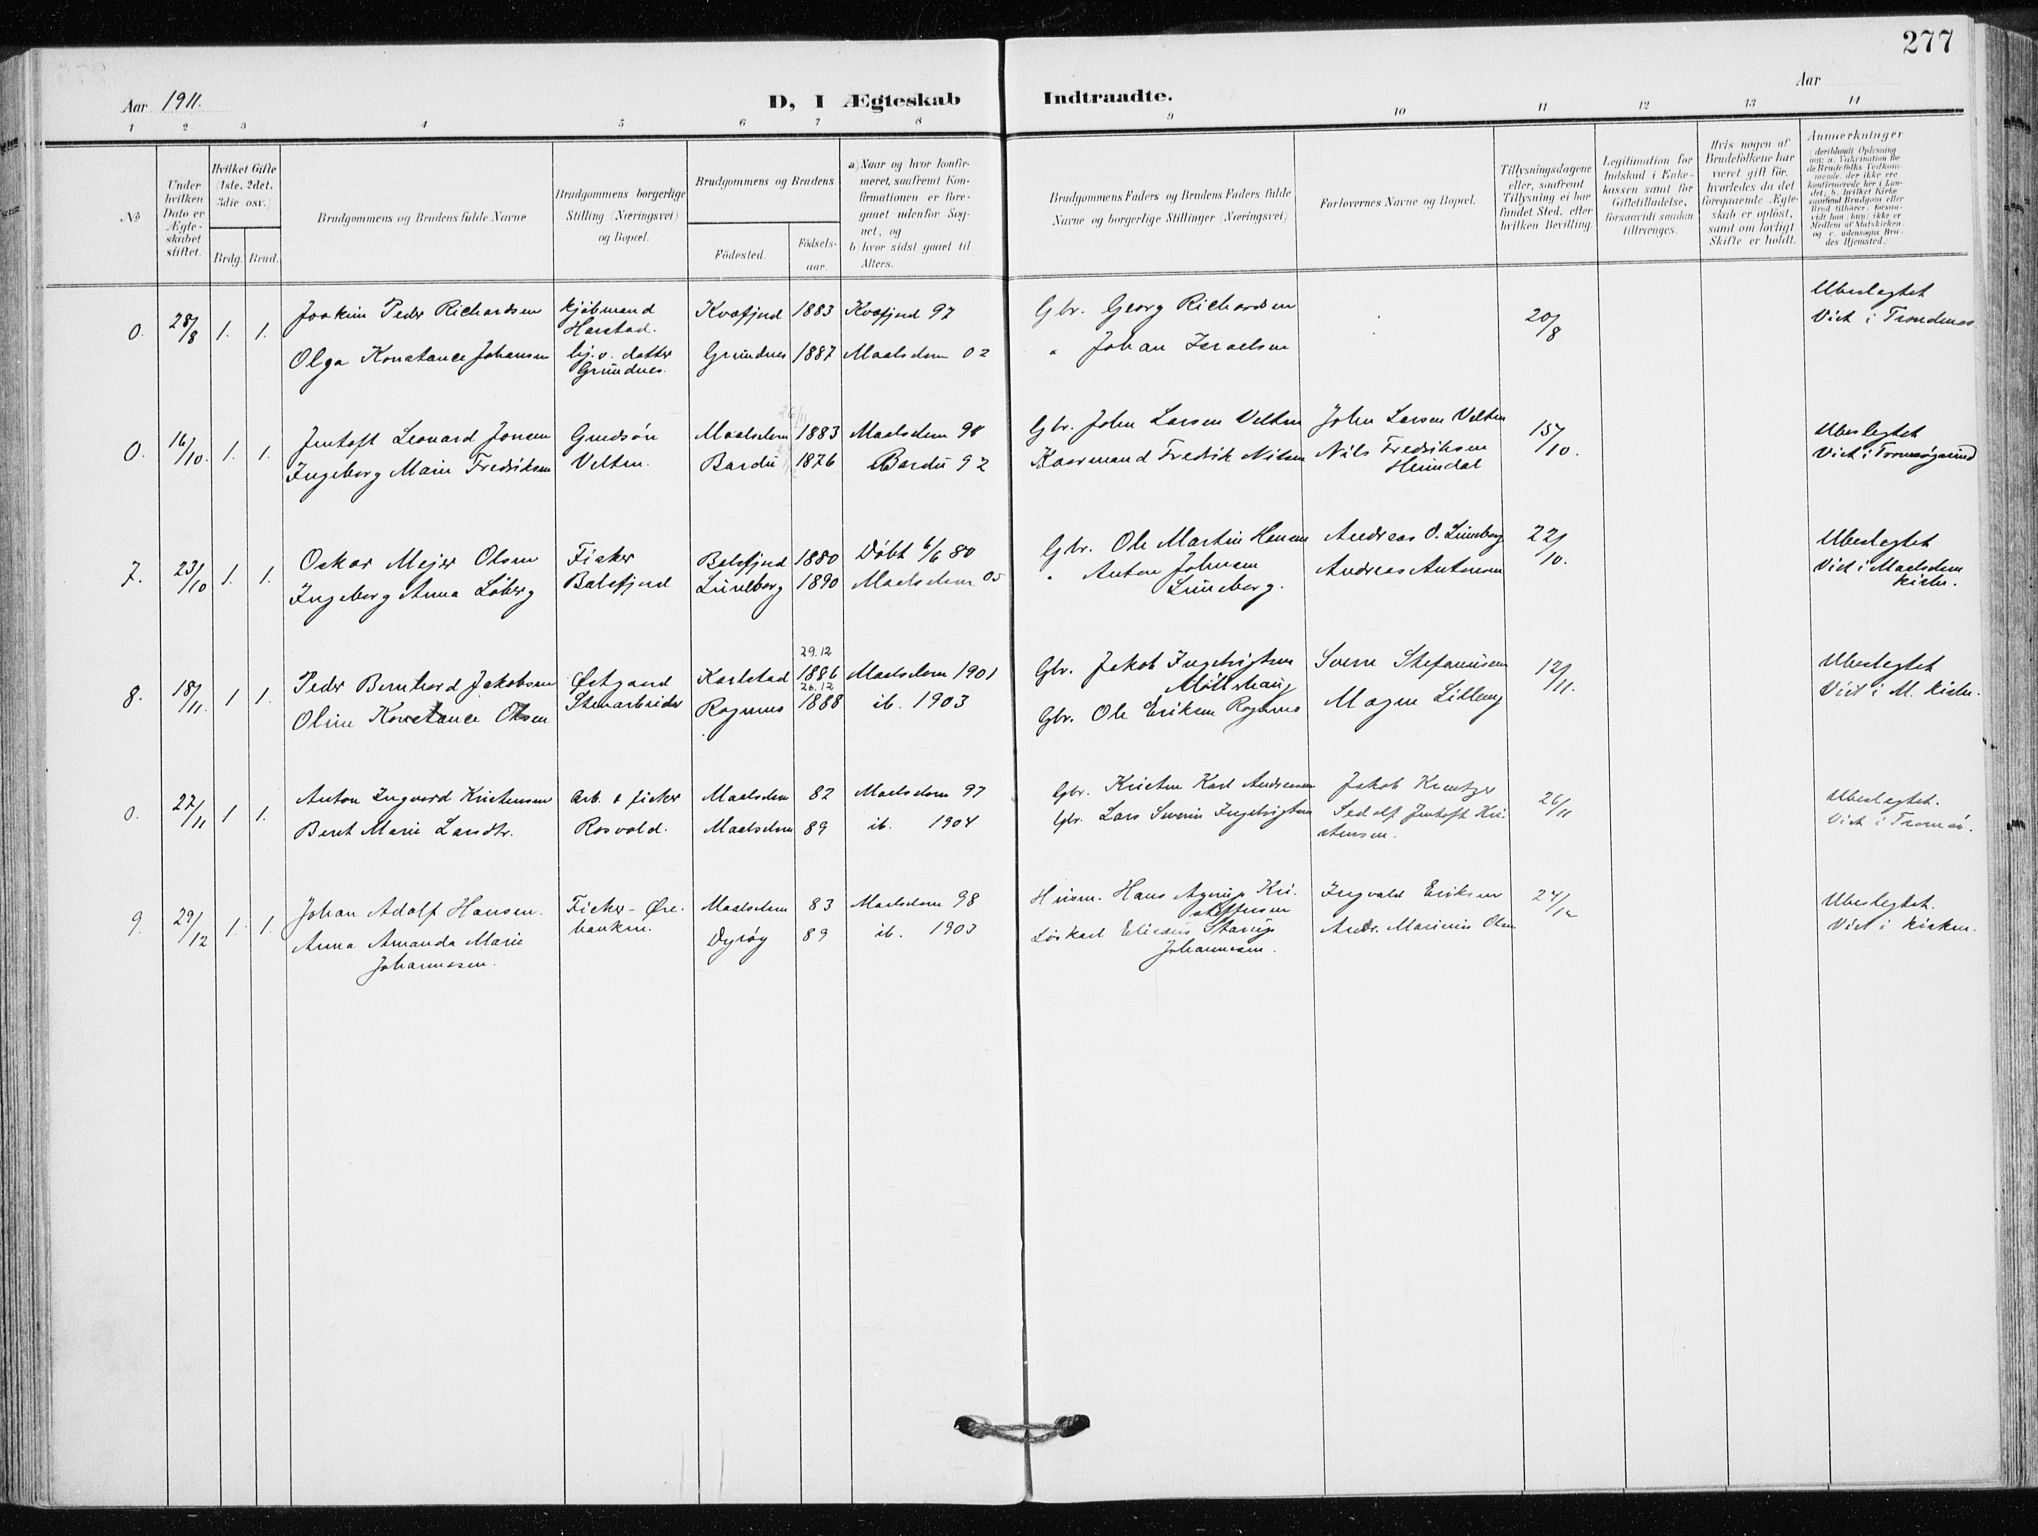 277
Aar 1911.
D, I Ægteskab Indtraadte.
Aar
1 2 3 4 5 6 7 8 9 10 11 12 13 14
№
Under hvilken Dato er Ægteskabet stiftet.
Hvilket Gifte (1ste, 2det, 3die osv.)
Brdg. Brud.
Brudgommens og Brudens fulde Navne
Brudgommens borgerlige Stilling (Næringsvei) og Bopæl.
Brudgommens og Brudens
Födested.
Födselsaar.
a) Naar og hvor konfirmeret, saafremt Konfirmationen er foregaaet udenfor Sognet, og
b) hvor sidst gaaet til Alters.
Brudgommens Faders og Brudens Faders fulde Navne og borgerlige Stillinger (Næringsvei)
Forlovernes Navne og Bopæl.
Tillysningsdagene eller, saafremt Tillysning ei har fundet Sted, efter hvilken Bevilling.
Legitimation for Indskud i Enkekassen samt for Giftetilladelse, forsaavidt saadan tiltrænges.
Hvis nogen af Brudefolkene har været gift för, hvorledes da det foregaaende Ægteskab er oplöst, samt om lovligt Skifte er holdt.
Anmerkninger
0. 28/8 1. 1. Joakim Peder Richardsen kjøbmand Harstad. Kvæfjord 1883 Kvæfjord 97 Gbr. Georg Richardsen 20/8 Ubeslegtet
Viet i Trondenæs
Olga Konstance Johansen bj. v. datter Grundnes. Grundnes 1887 Maalselven 02 " Johan Israelsen
0. 16/10. 1. 1. Jentoft Leonard Jonsen Gaardsøn Maalselven 1883 Maalselven 98 Gbr. John Larsen Velten John Larsen Velten 15/10. Ubeslegtet
Ingeborg Marie Fredriksen Velten. Bardu 1876 Bardu 92 Fredrik Nilsen Nils Fredriksen Heimdal Viet i Tromsøsund
7. 23/10 1. 1. Oskar Mejer Olsen Fisker Balsfjord 1880 Døbt 6/6 80 Gbr. Ole Martin Hansen Andreas O. Luneborg 22/10. Ubeslegtet
Ingeborg Anna Løberg Balsfjord Luneborg 1890 Maalselven 05 " Anton Johnsen Luneborg. Andreas Antonsen Viet i Maalselven kirke.
8. 18/11. 1 1. Peder Bernhard Jakobsen Østgaard Karlstad 29.12 1886 Maalselven 1901 Gbr. Jakob Ingebrigtsen Sverre Stefanussen 12/11. Ubeslegtet
Oline Konstance Olsen Stenarbeider Rognmo 26.12 1888 ib. 1903 Gbr. Ole Eriksen Rognmo Magne Lilleng Viet i M. kirke.
0. 27/11 1 1. Anton Ingvard Kristensen Arb. & fisker Maalselven 82 Maalselven 97 Gbr. Kristen Karl Andreassen Jakob Kreutzer 26/11 Ubeslegtet.
Beret Marie Larsdtr. Rosvold. Maalselven 89 ib. 1904 Gbr. Lars Severin Ingebrigtsen Sedolf Jentoft Kristensen. Viet i Tromsø.
9. 29/12 1. 1. Johan Adolf Hansen. Fisker - Ørebanken. Maalselven 83 Maalselven 98 Husm. Hans Kristoffersen Ingvald Eriksen 24/12 Ubeslegtet.
Anna Amanda Marie Johannesen. Dyrøy 89 ib. 1903 Løskarl Johannesen. Andr. Marinius Olsen Viet i kirken.